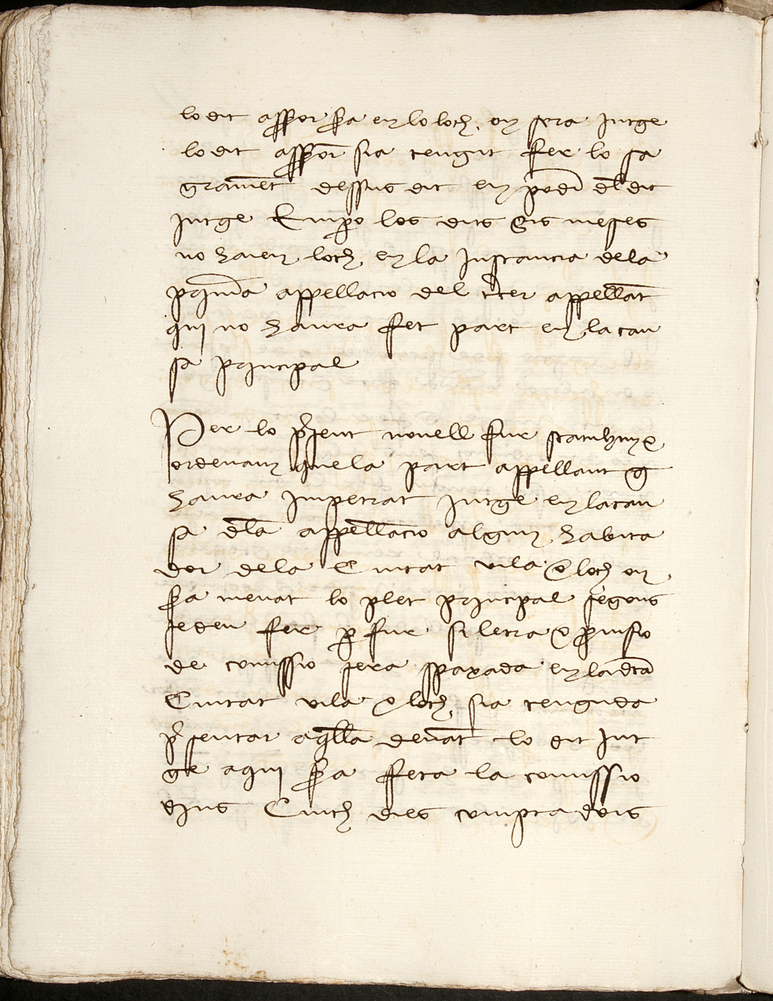 lo dit assessor sera en lo loch, on sera jutge
lo dit assessor sia tengut fer lo sa
grament dessus dit en poder del dit
jutge Empero los dits sis meses
no hajen loch, en la instancia dela
primera appellacio del tercer appellant
qui no haura fet part en la cau
sa principal
Per lo present novell fur statuhim e
ordenam que la part appellant que
haura impetrat jutge en la cau
sa dela appellacio algun habita
dor dela Ciutat vila o loch on
sera menat lo plet principal segons
se deu fer per fur si letra o provisio
de comissio sera spaxada en la dita
Ciutat vila o loch, sia tenguda
presentar aquella devant lo dit Jut
ge aqui sera feta la comissio
dins Cinch dies comptadors